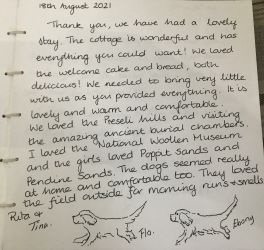 18th August 2021
Thank you, we have had a lovely
stay. The cottage is wonderful and has
everything you could want! We loved
the welcome cake and bread, both
delicious! We needed to bring very little
with us as you provided everything. It is
lovely and warm and comfortable.
We loved the Preseli hills and visiting
the amazing ancient burial chambers.
I loved the National Woollen Museum
and the girls loved Poppit Sands and
Pendine Sands. The dogs seemed really
at home and comfortable too. They loved
the field outside for morning runs & smells
Rita &
Tina.
Flo.
Ebony